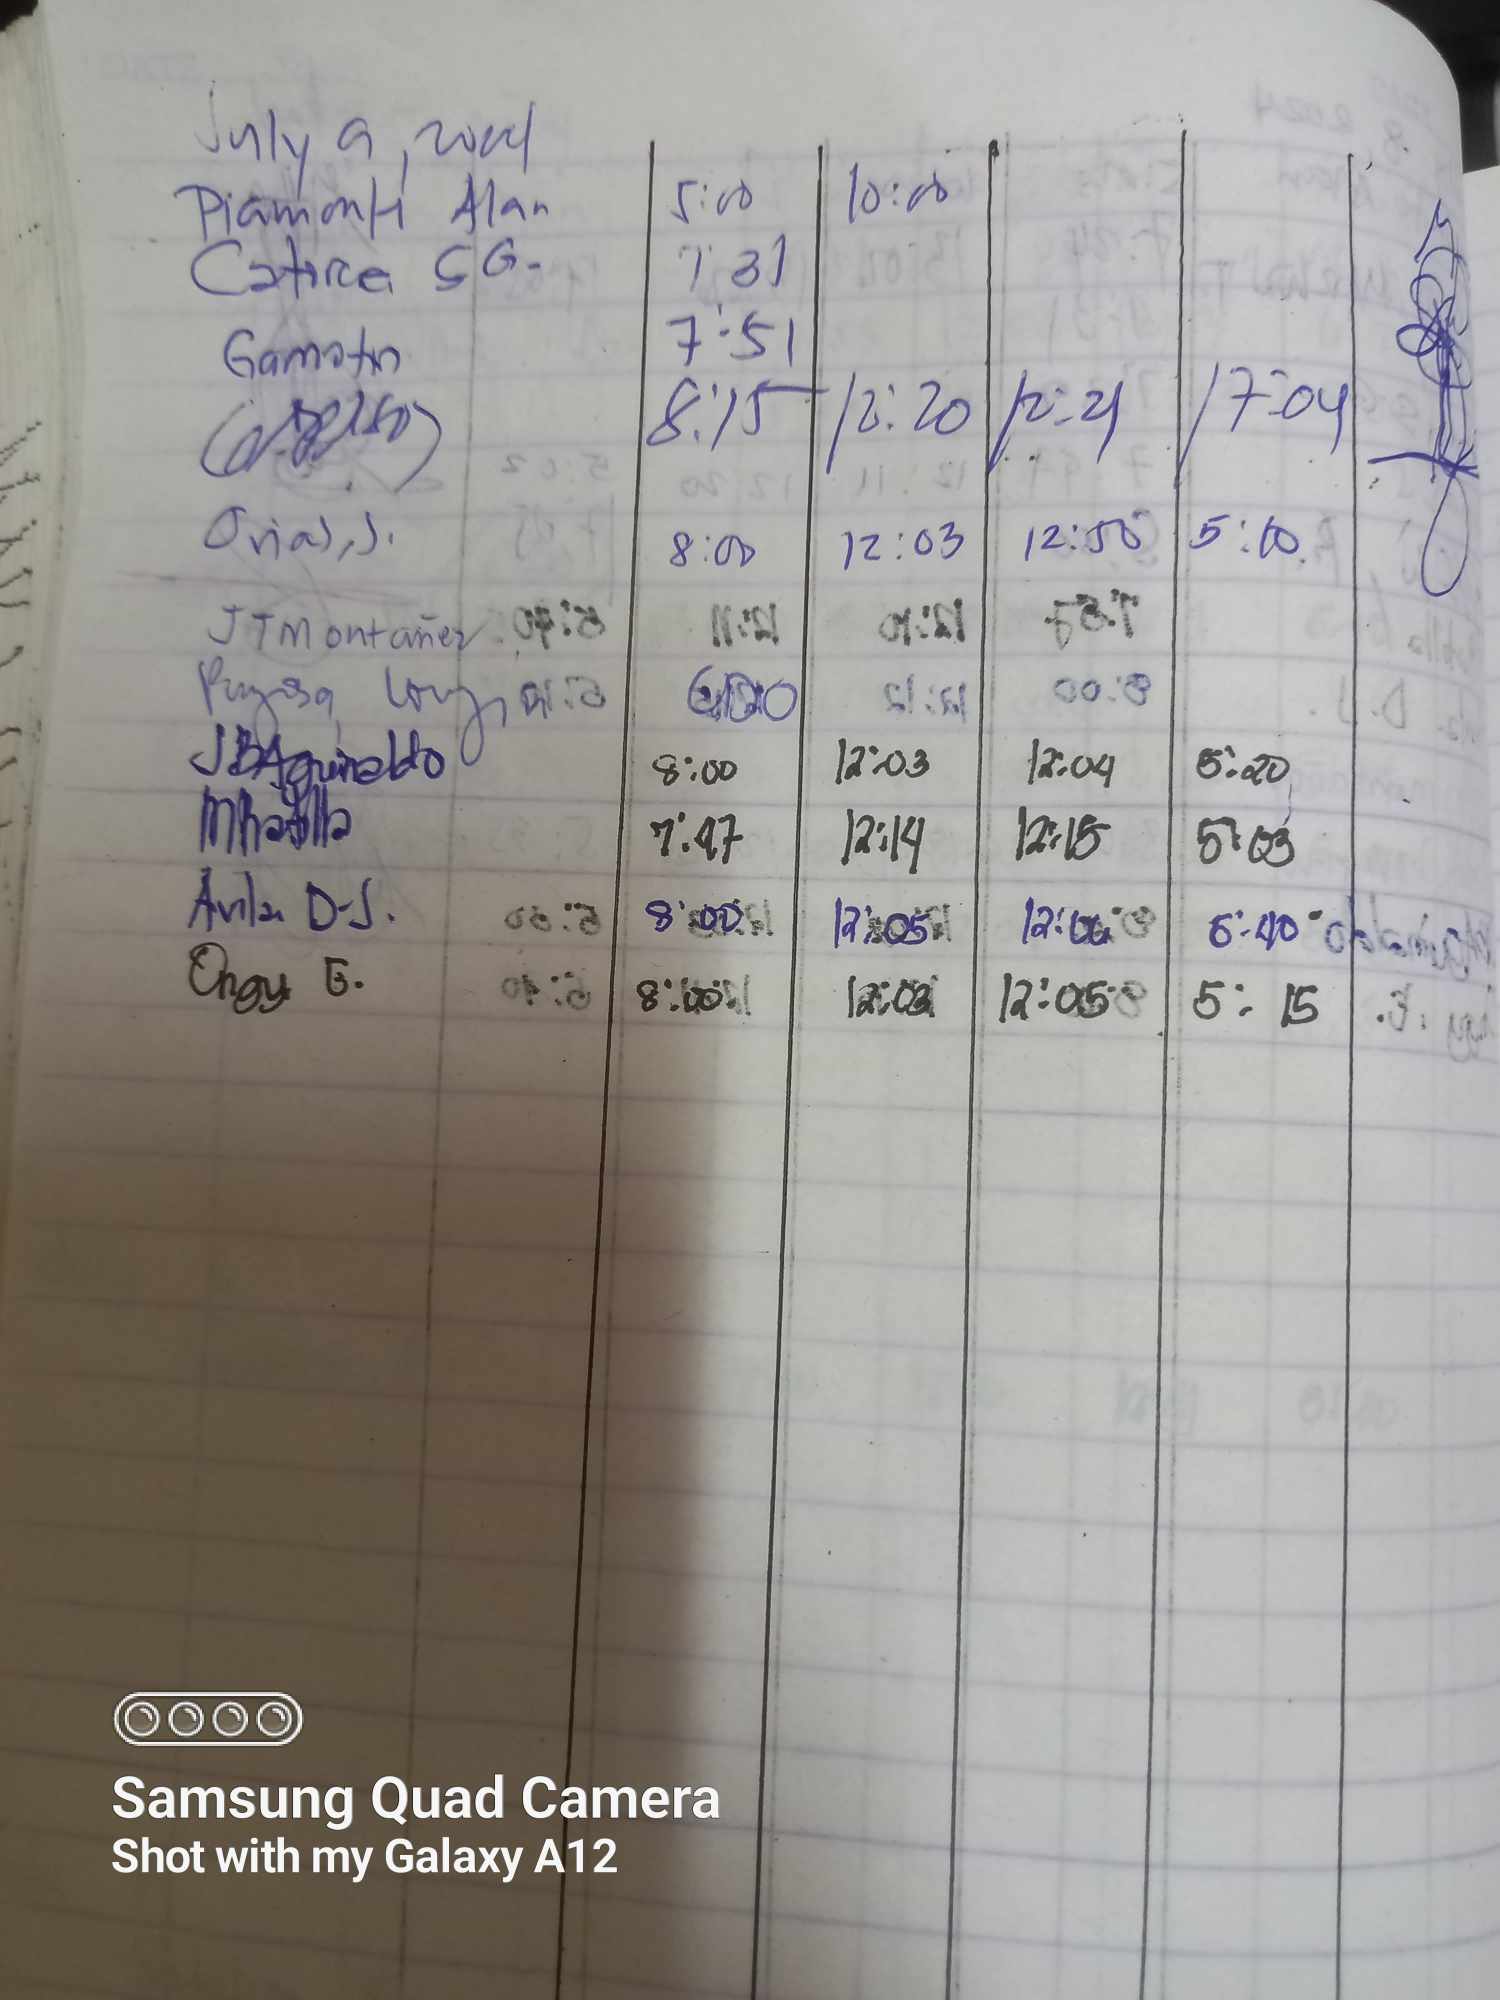 July 9, 2024
Piamonte Alan 5:00 10:00
Catire S G. 7:31
Gamotin 7:51
8:15 12:20 12:21 17:04
Orias, J. 8:00 12:03 12:50 5:10
JTMontañez
JBAguinaldo 8:00 12:03 12:04 5:20
7:47 12:14 12:15 5:03
Avila D.J. 8:00 12:05 12:06 5:40
Ongy E. 8:00 12:02 12:05 5:15
Samsung Quad Camera
Shot with my Galaxy A12